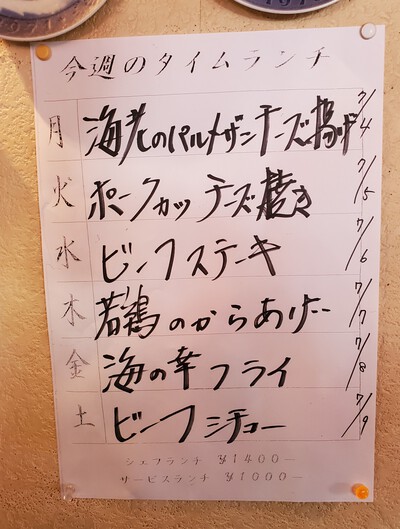 今週のタイムランチ
月 海老のパルメザンチーズ揚げ 7/4
火 ポークカツチーズ焼き 7/5
水 ビーフステーキ 7/6
木 若鶏のからあげ 7/7
金 海の幸フライ 7/8
土 ビーフシチュー 7/9
シェフランチ ¥1400—
サービスランチ ¥1000—